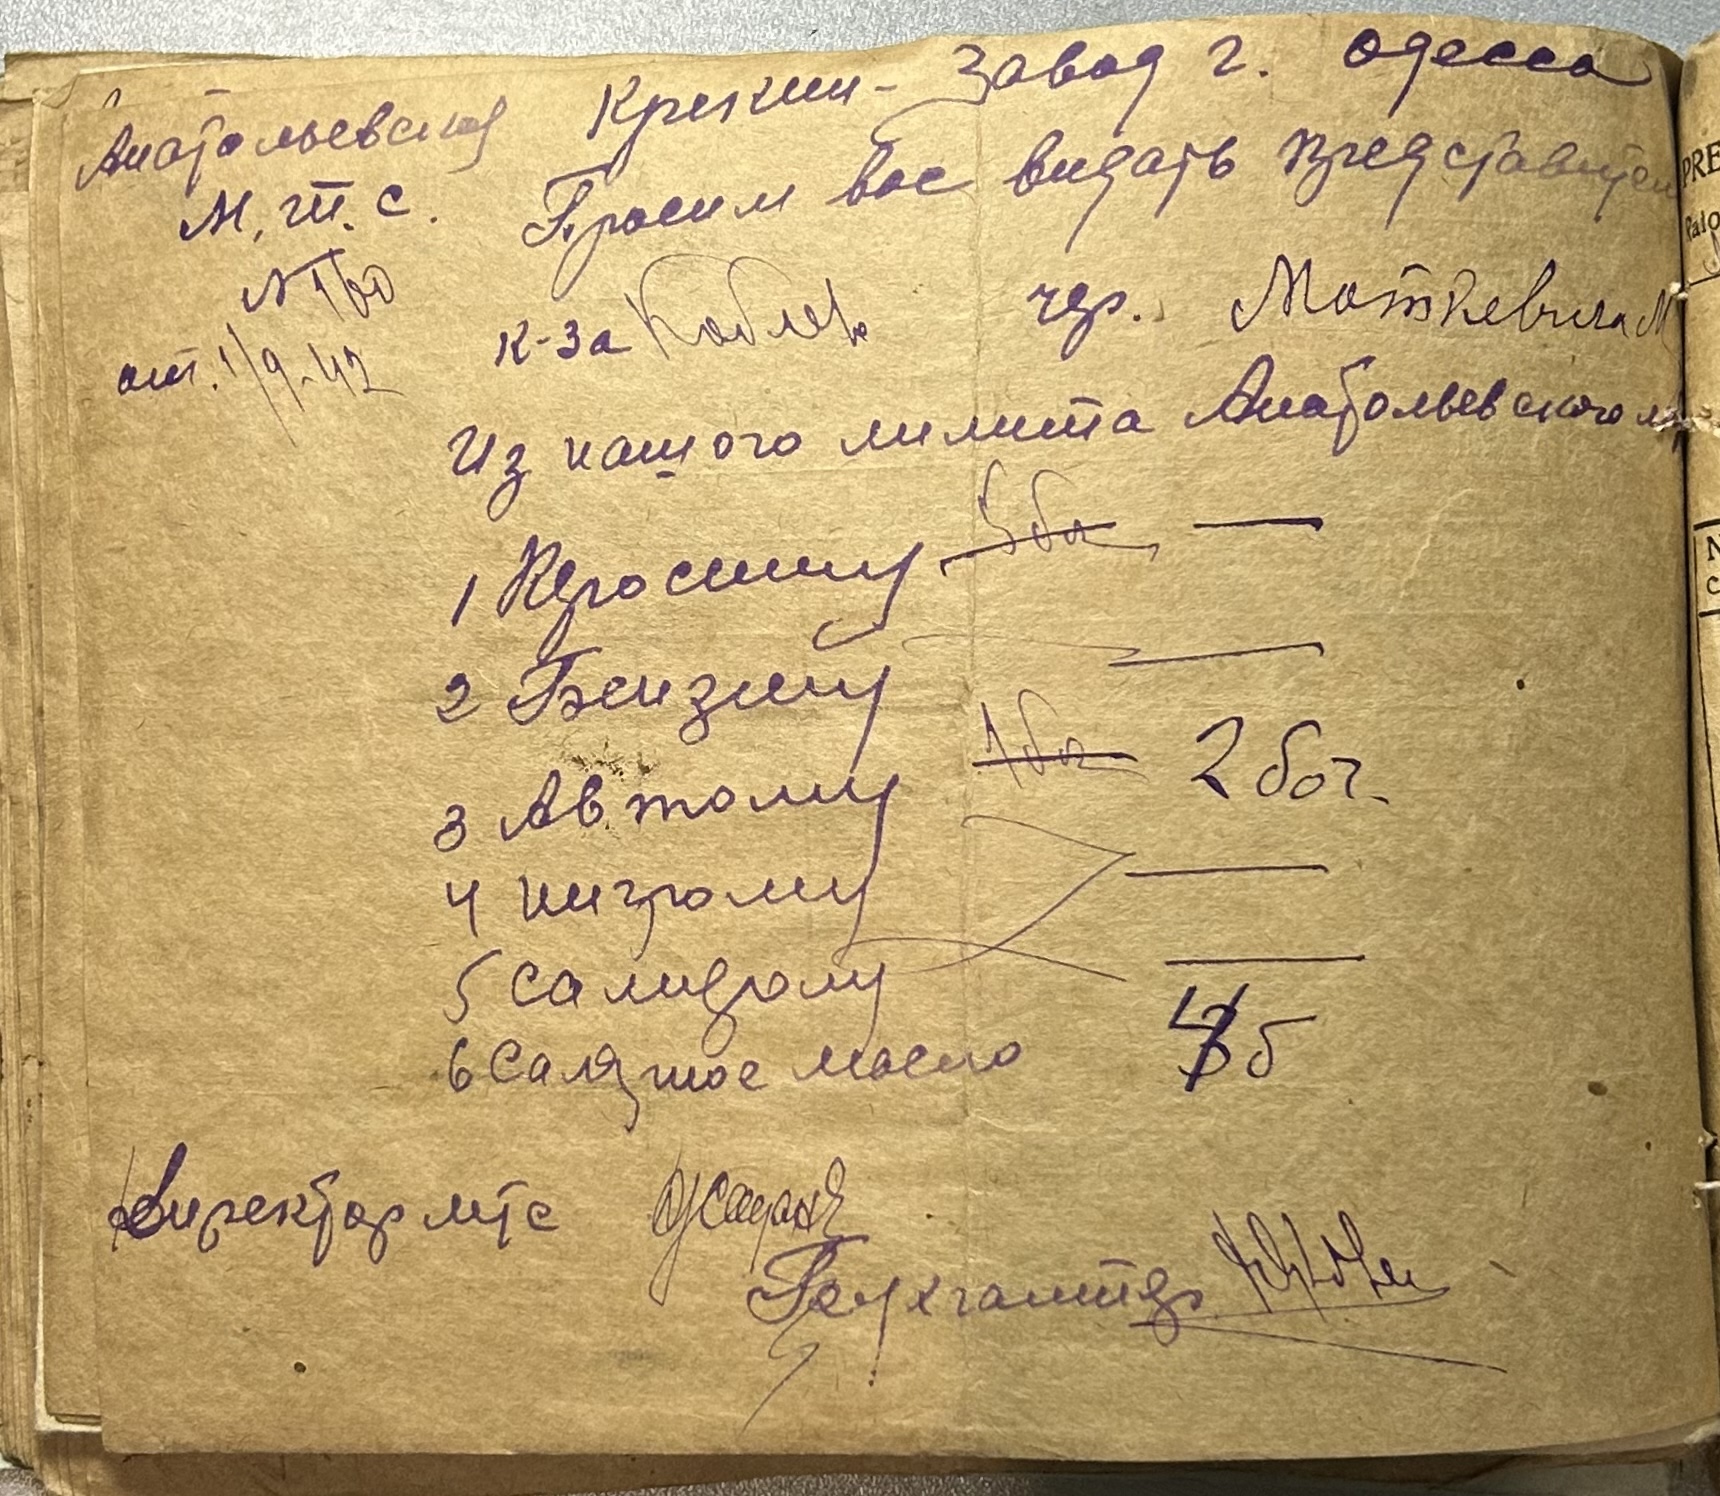 Анатольевская
М.Т.С.
№ 160
от. 1/9-42
Крекин-Завод г. Одесса
Просим вас видать представител
к-за Коблев чер. Маткевича М
Из нашого лимита Анатольевского м
1 Керосину 5 боч —
2 Бензину —
3 Автолу 1 боч 2 боч.
4 нигролу —
5 Салидолу —
6 Салярное масло 4 б
Директор МТС
Бухгалтер
PRE
Palo
N
C